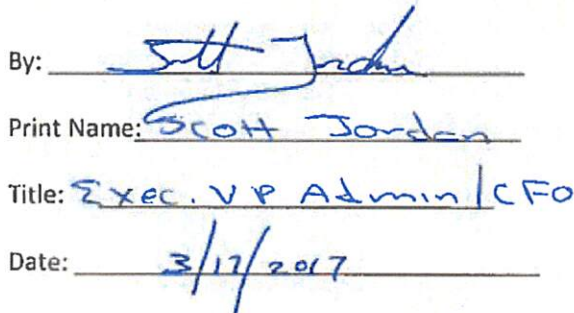 By: Scott Jordan
Print Name: Scott Jordan
Title: Exec. VP Admin/CFO
Date: 3/17/2017